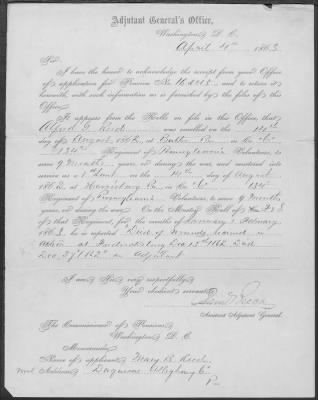 Adjutant General's Office,
Washington, D. C.
April 4th 1863
Sir:
I have the honor to acknowledge the receipt from your Office
of application for Pension No. and to return it
herewith, with such information as is furnished by the files of this
Office.
It appears from the Rolls on file in this Office, that
Alfred G. Reed was enrolled on the 14th
day of August 1862, at Butler Pa in Co.
134th Regiment of Pennsylvania Volunteers, to
serve 9 months years, or during the war, and mustered into
service as a 1st Lieut on the 14th day of August
1862, at Harrisburg Pa in Co. 134th
Regiment of Pennsylvania Volunteers, to serve 9 months
years, or during the war. On the Muster Roll of F & S
of that Regiment, for the months of January & February
1863, he is reported "Died of wounds received in
action at Fredericksburg Dec 13th 1862 Died
Dec 27 1862" an Adjutant
I am, Sir, very respectfully,
Your obedient servant,
Assistant Adjutant General.
The Commissioner of Pensions,
Washington, D. C.
Memoranda:
Name of applicant, Mary E. Reed
Address: Duquesne Allegheny Co
Pa